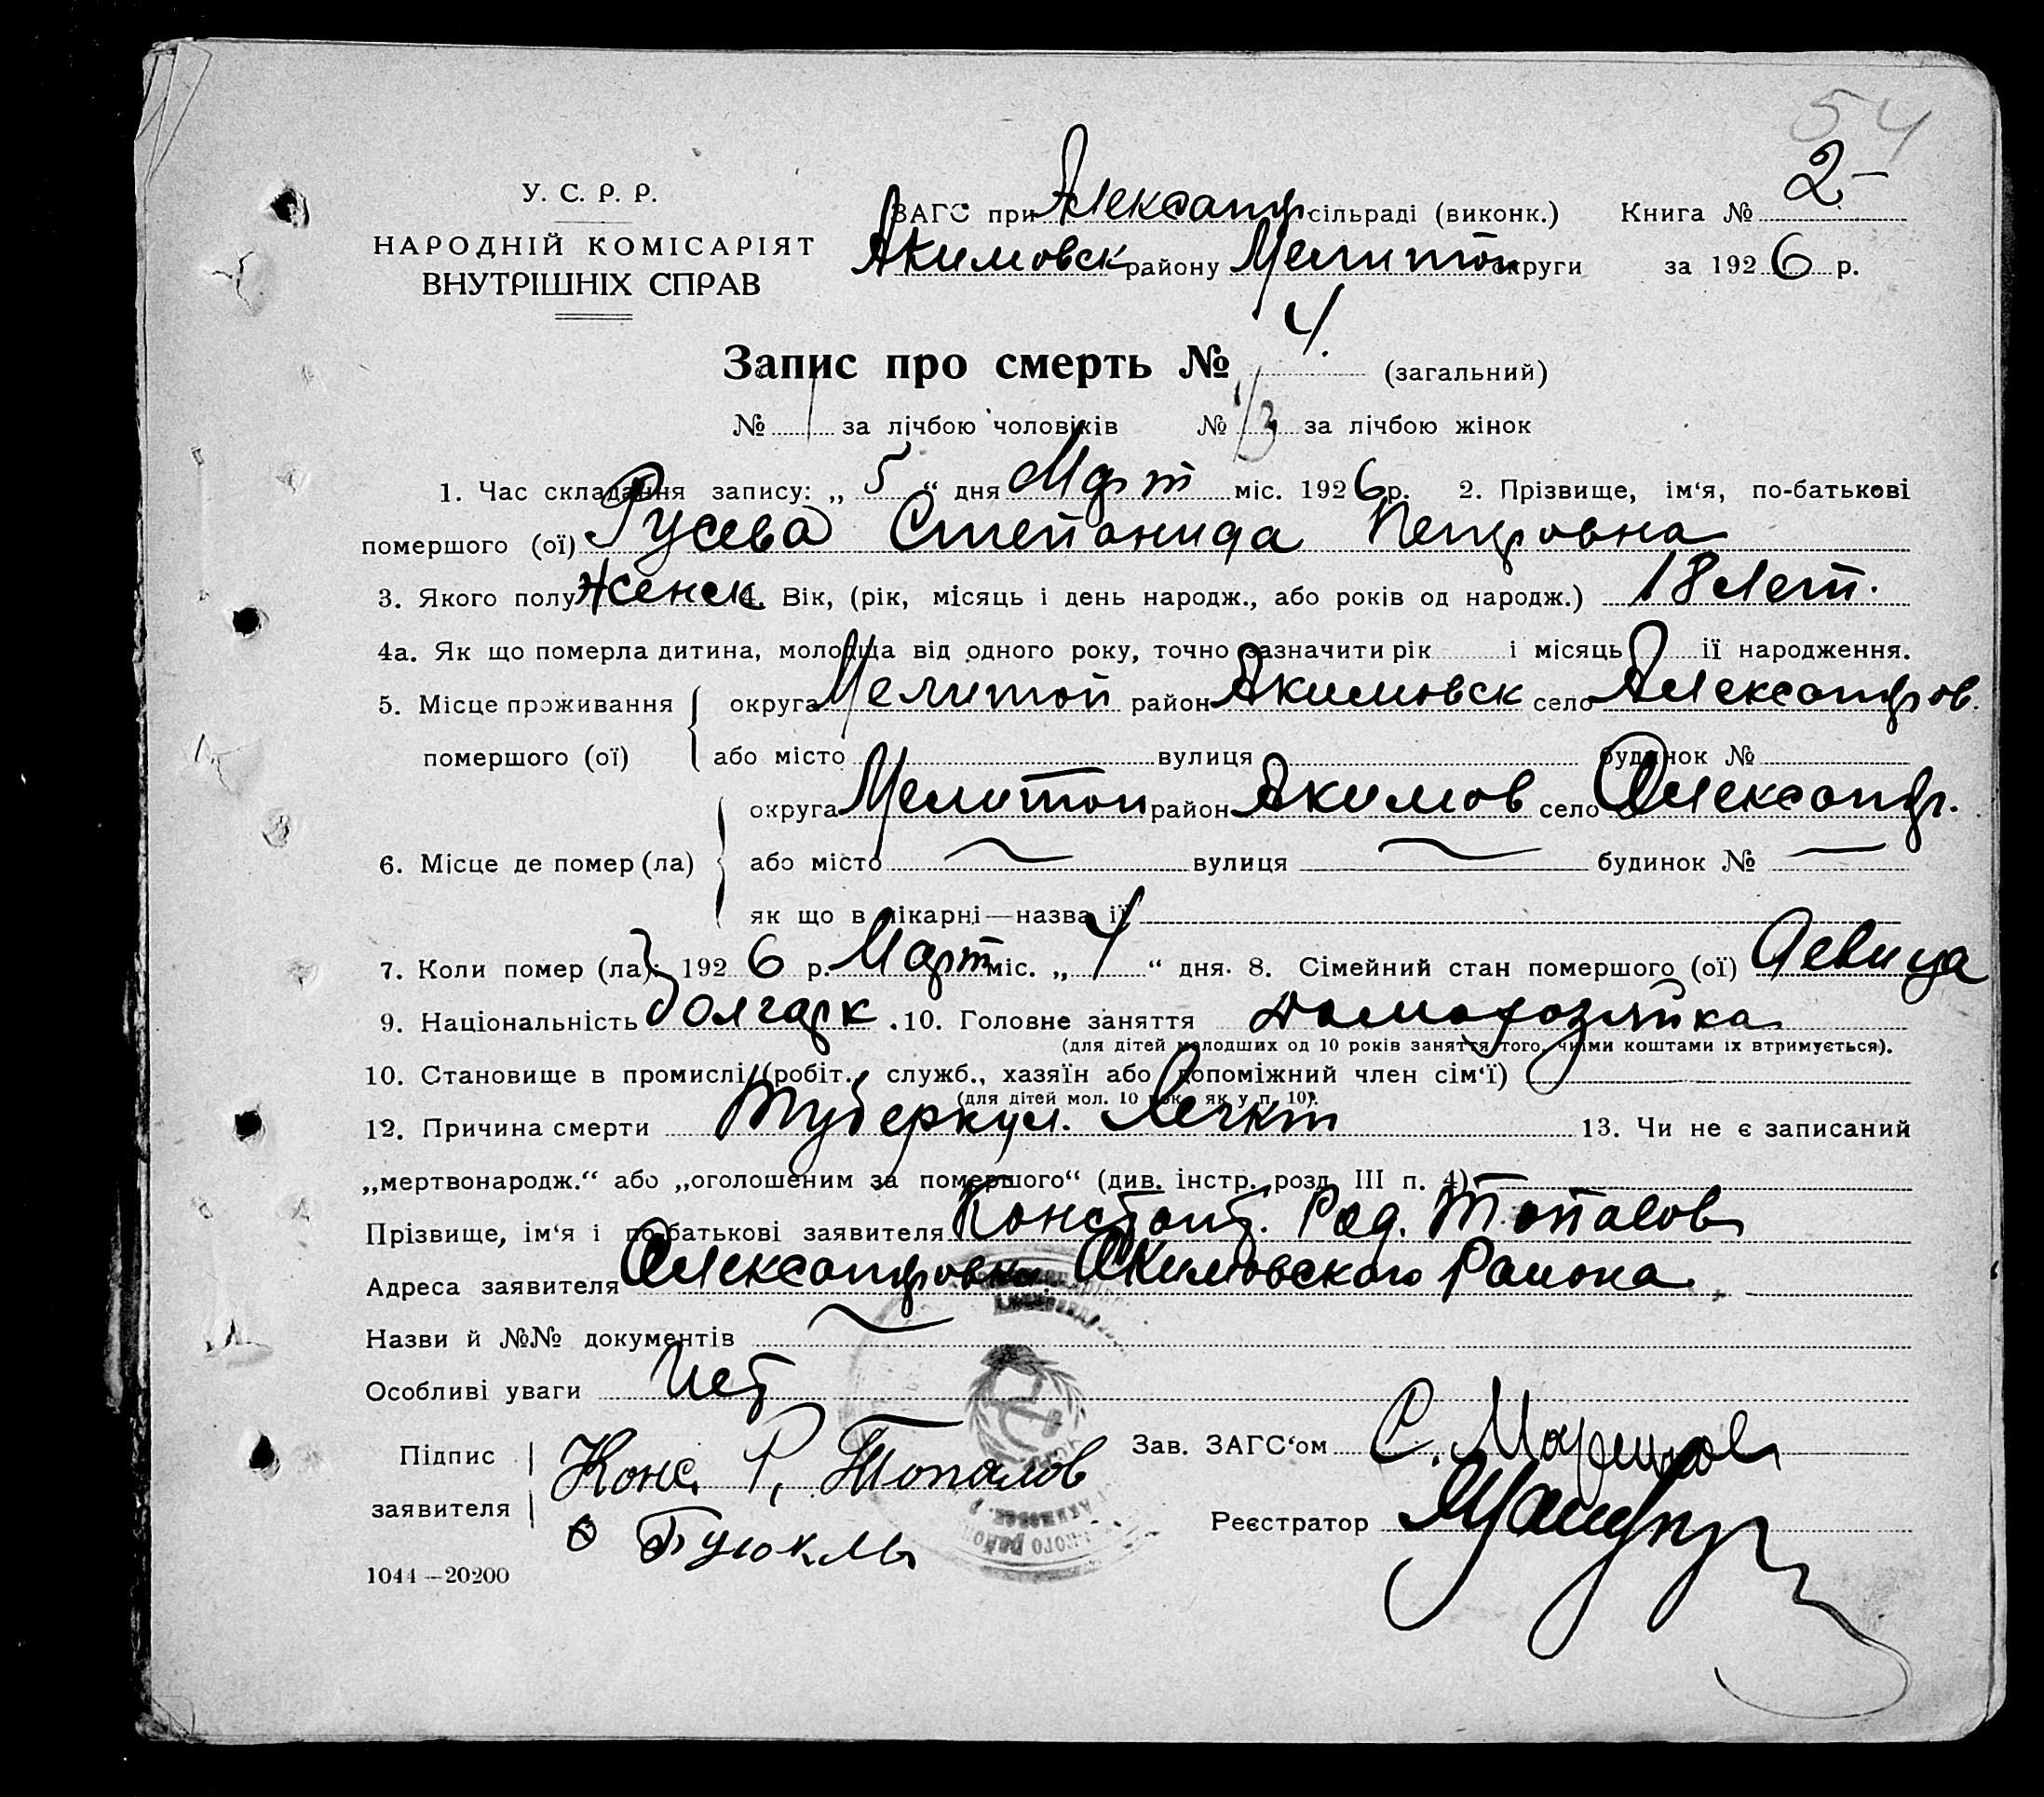 54
У. С. Р. Р.
НАРОДНІЙ КОМІСАРІЯТ
ВНУТРІШНІХ СПРАВ
ЗАГС при Александр сільраді (виконк.) Книга № 2-
Акимовск району Мелитоп округи за 1926 р.
Запис про смерть № 4. (загальний)
№ 1 за лічбою чоловіків № 3 за лічбою жінок
1. Час складання запису: „ 5 “ дня Март міс. 1926 р. 2. Прізвище, ім‘я, по-батькові
помершого (ої) Русева Степанида Петровна
3. Якого полу Женск 4. Вік, (рік, місяць і день народж., або років од народж.) 18 лет.
4а. Як що померла дитина, молодща від одного року, точно зазначити рік і місяць ії народження.
5. Місце проживання округа Мелитоп район Акимовск село Александров.
помершого (ої) або місто вулиця будинок №
округа Мелитоп район Акимов село Александр.
6. Місце де помер (ла) або місто — вулиця — будинок № —
як що в лікарні—назва ії
7. Коли помер (ла): 1926 р. Март міс. „ 4 “ дня. 8. Сімейний стан помершого (ої) Девица
9. Національність Болгарк . 10. Головне заняття Домохозяйка
(для дітей молодших од 10 років заняття того, чиїми коштами іх втримується).
10. Становище в промислі (робіт., служб., хазяїн або допоміжний член сім‘ї)
(для дітей мол. 10 рок. як у п. 10).
12. Причина смерти Туберкул. Легкт 13. Чи не є записаний
„мертвонародж.“ або „оголошеним за помершого“ (див. інстр. розд. III п. 4) —
Прізвище, ім‘я і по-батькові заявителя Констант. Род. Топалов
Адреса заявителя Александровка Акимовского Района.
Назви й №№ документів —
Особливі уваги Нет
Підпис заявителя Конс. Р. Топалов
Зав. ЗАГС‘ом С.
Реєстратор
1044—20200